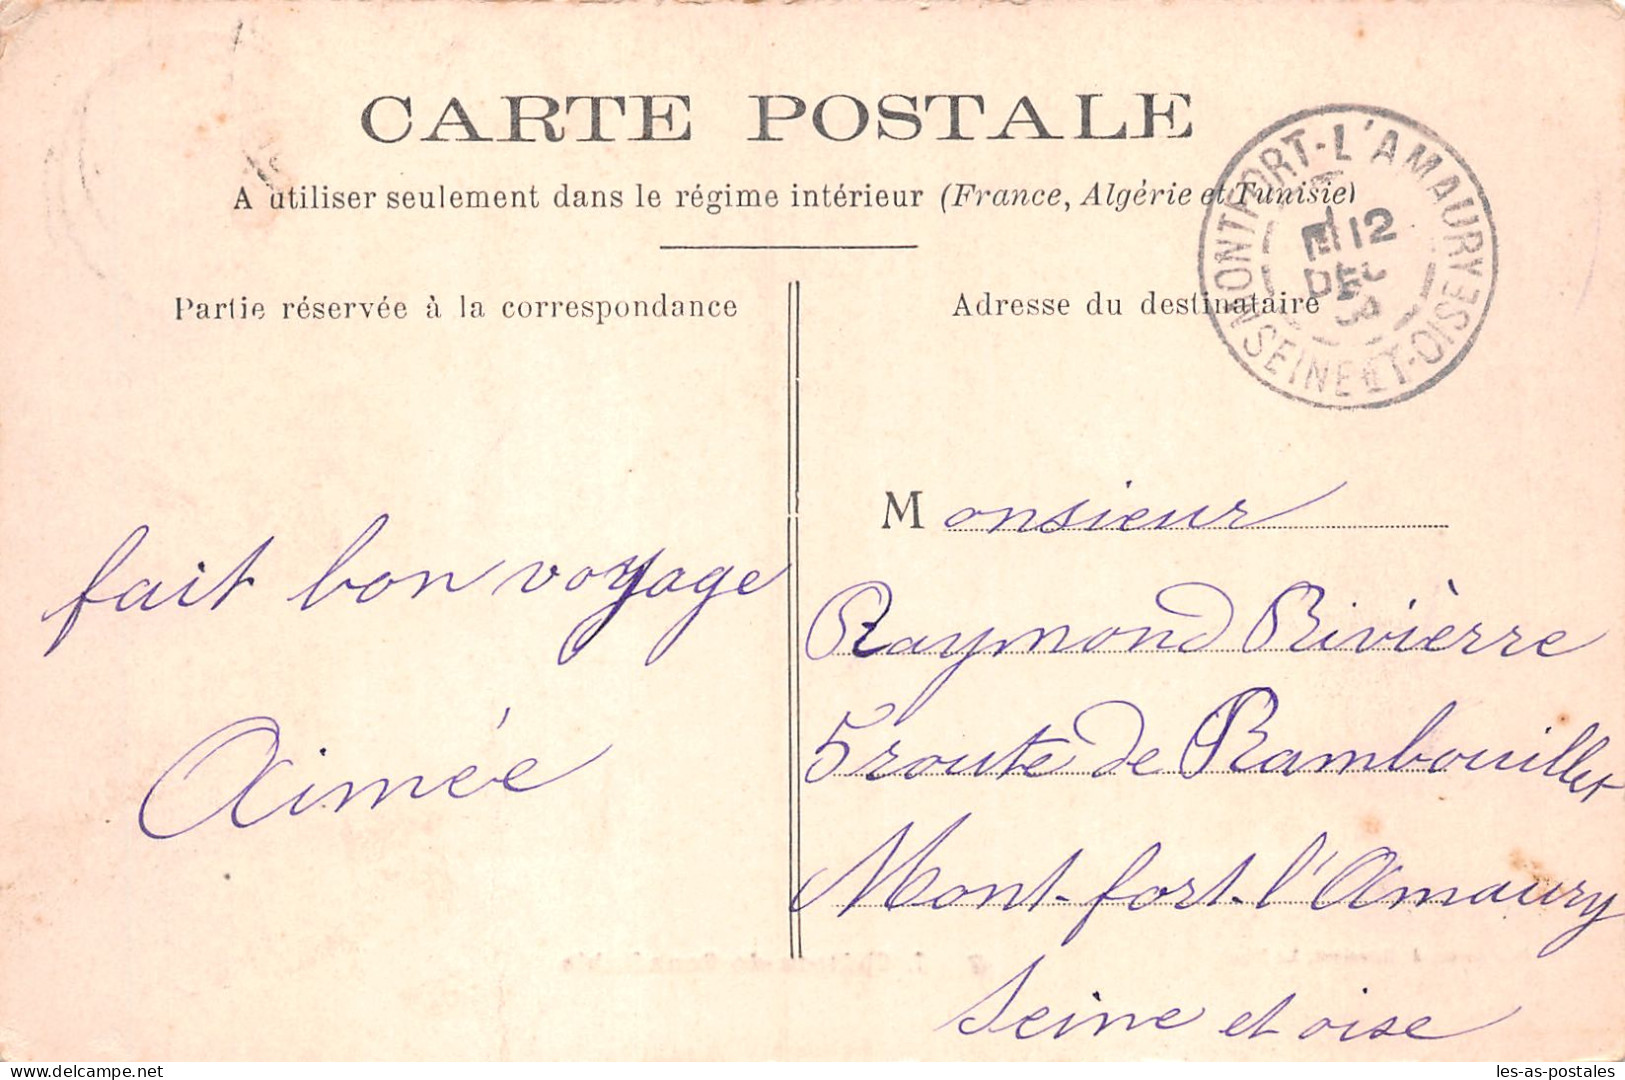 CARTE POSTALE
A utiliser seulement dans le régime intérieur (France, Algérie et Tunisie)
MONTFORT-L'AMAURY
12
DEC
SEINE-ET-OISE
Partie réservée à la correspondance
Adresse du destinataire
fait bon voyage
Aimée
Monsieur
Raymond Rivièrre
5 route de Rambouillet
Mont-fort-l'Amaury
Seine et oise
delcampe.net
les-as-postales